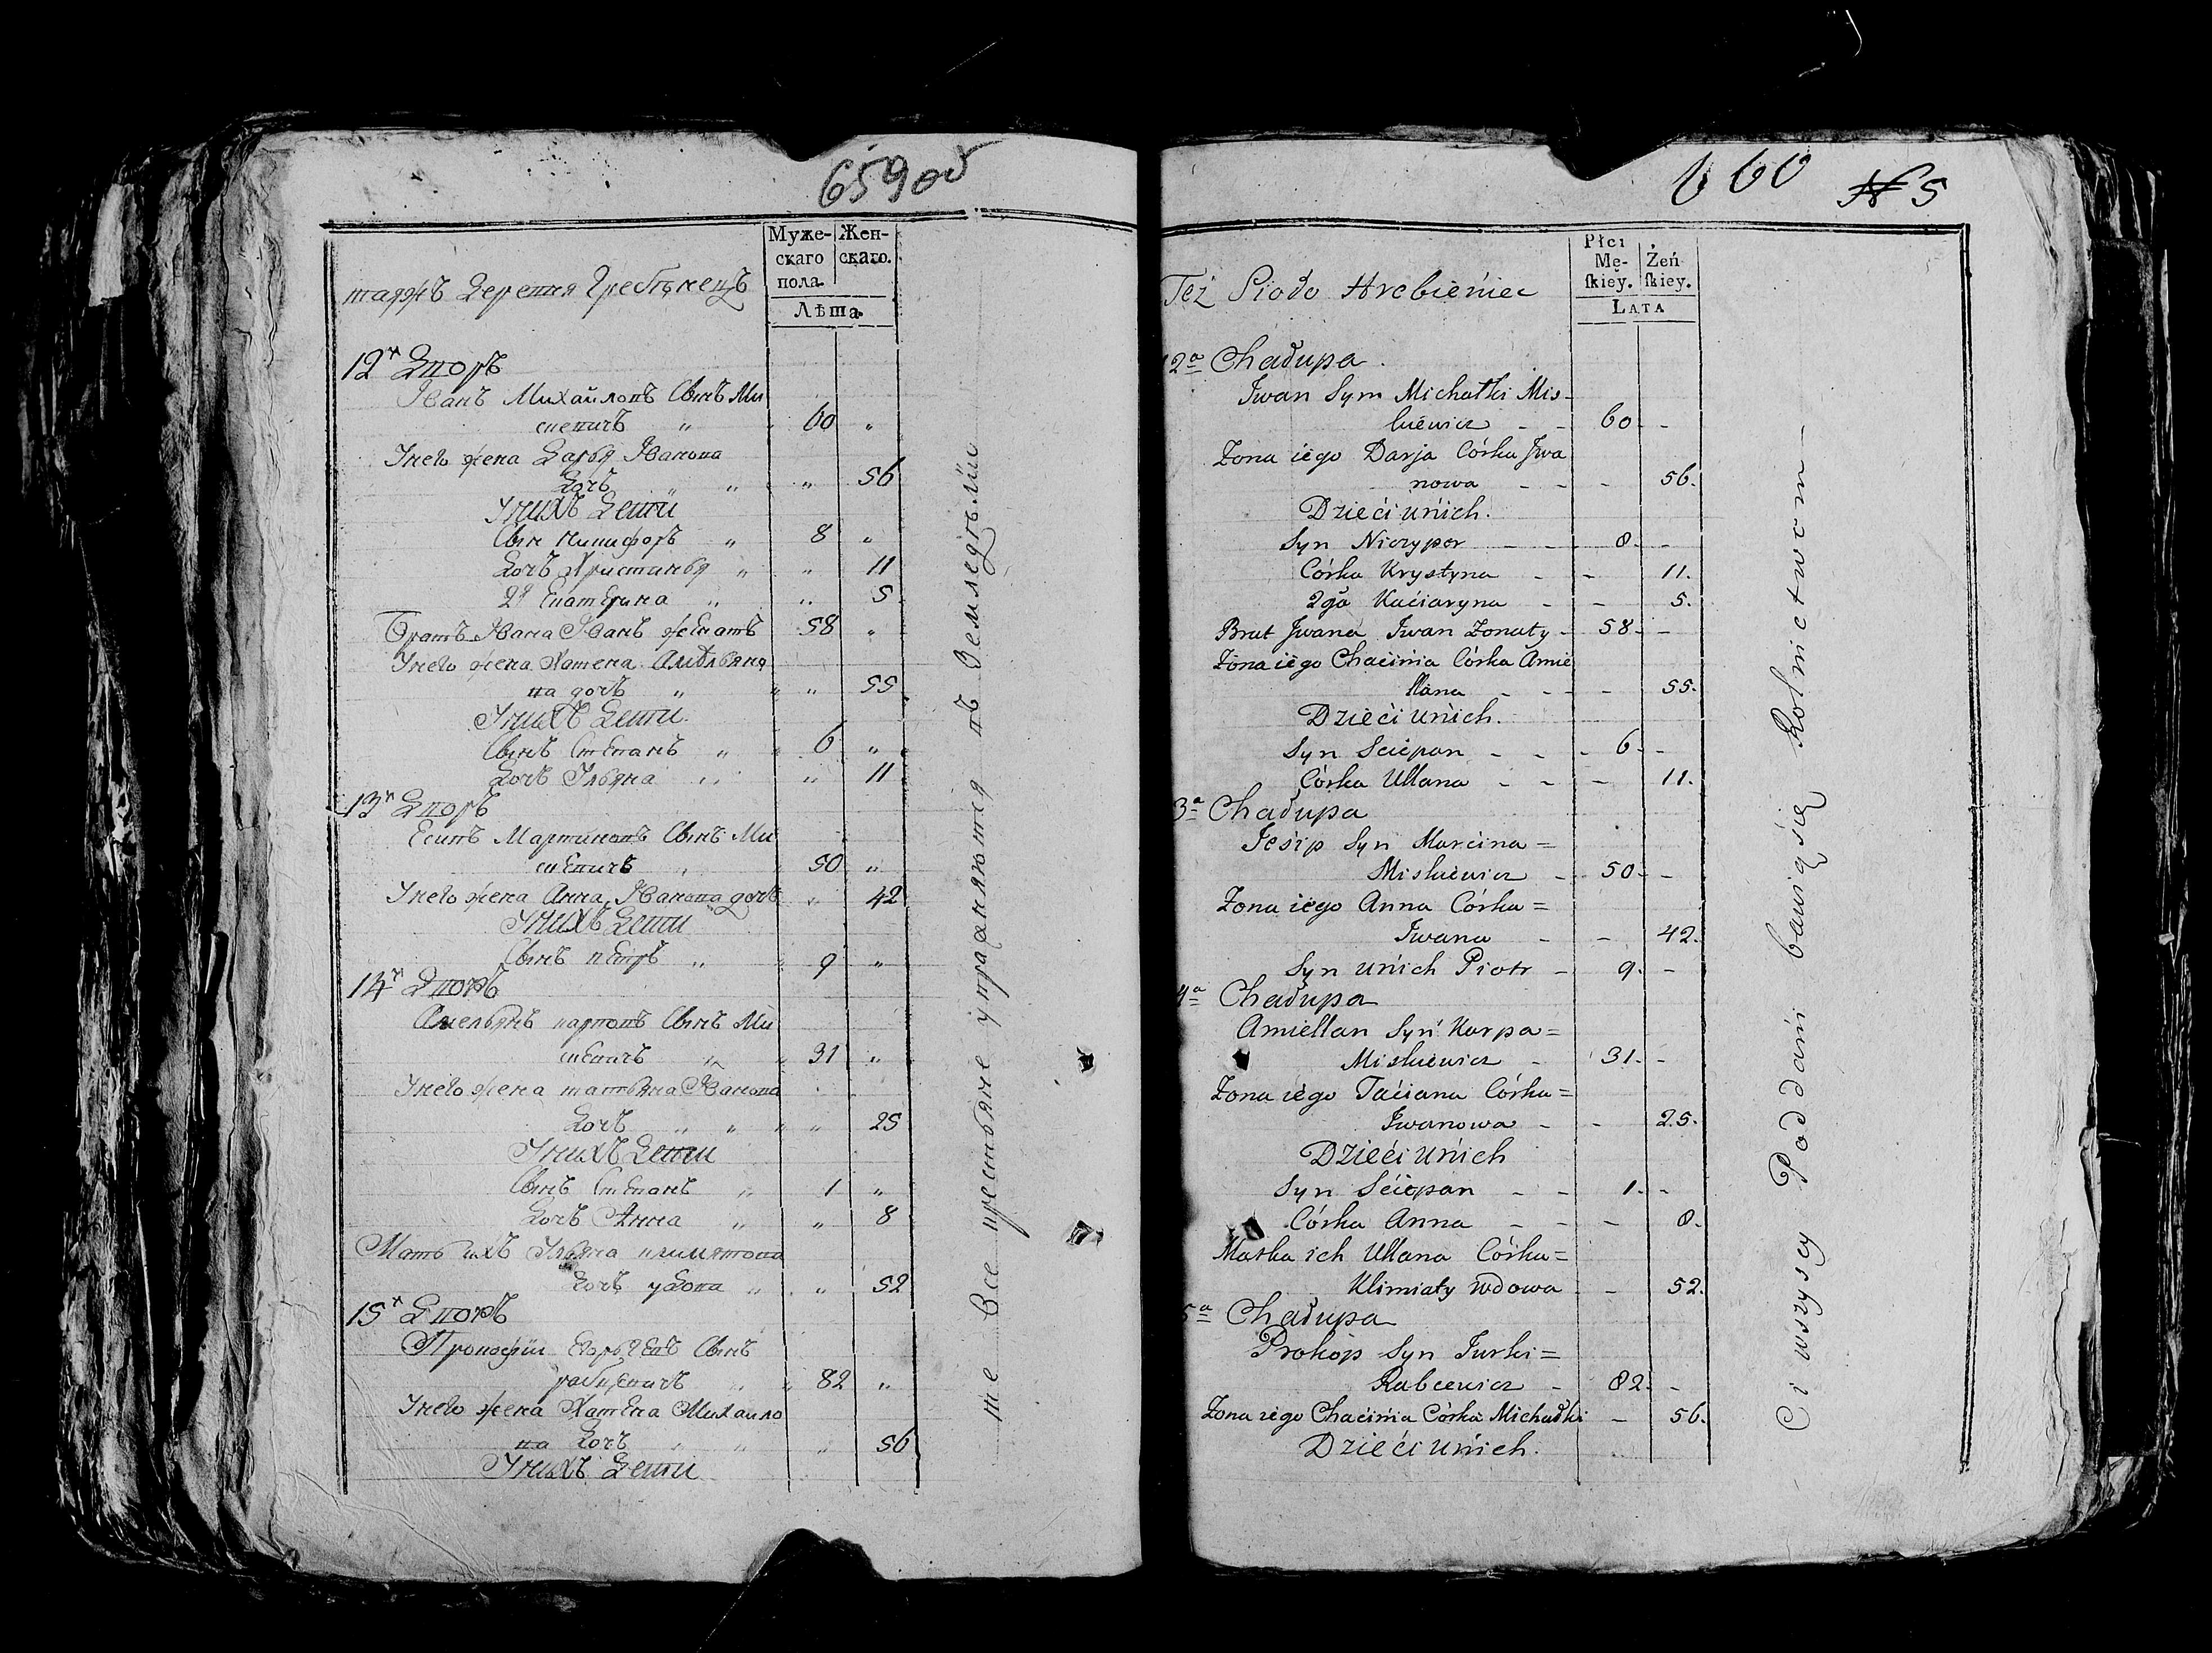 659об
Муже-
скаго
пола.
Жен-
скаго.
Лѣта.
таяжъ Деревня Гребѣнецъ
12й Дворъ
Иванъ Михайловъ Сынъ Ми
скевичъ " 60 "
Унего жена Дарья Иванова
Дочь " " " 56
Унихъ Дети
Сын Никифоръ " 8 "
Дочь Христинья " " 11
2я Екатерина " " 5
Братъ Ивана Иванъ женатъ 58 "
Унего жена Хатена Амельяно
ва дочь " " " 55
Унихъ Дети
Сынъ Степанъ " 6 "
Дочь Ульяна " " 11
13й Дворъ
Есипъ Мартиновъ Сынъ Ми
скевичъ " 50 "
Унего жена Анна Иванова дочь " 42
Унихъ Дети
Сынъ Петръ " 9 "
14й Дворъ
Амельянъ карповъ Сынъ Ми
скевичъ " 31 "
Унего жена татьяна Иванова
Дочь " " " " 25
Унихъ Дети
Сынъ Степанъ " 1 "
Дочь Анна " " 8
Мать ихъ Ульяна климятова
Дочь удова " " 52
15й Дворъ
Прокофiй Егорьевъ Сынъ
рабцевичъ " 82 "
Унего жена Хатена Михайло
ва Дочь " " " 56
Унихъ Дети
те Все крестьяне упражняются въ Земледѣлiи
660
N 5
Płci
Mę-
skiey.
Żeń
skiey.
Lata
Też Sioło Hrebieniec
2a Chałupa
Iwan Syn Michałki Mis-
kiewicz - - 60 - -
Zona iego Darja Córka Jwa
nowa - - - 56.
Dzieći unich.
Syn Niczyper - - 8 - -
Córka Krystyna - - 11.
2ga Kaciaryna - - 5.
Brat Jwana Iwan Zonaty - 58 - -
Zona iego Chacinia Córka Amie
llana - - - 55.
Dzieći unich.
Syn Sciepan - - - 6 - -
Córka Ullana - - - 11.
3a Chałupa
Jesip Syn Marcina =
Miskiewicz - 50 - -
Zona iego Anna Córka =
Iwana - - 42.
Syn unich Piotr - 9. -
4a Chałupa
Amiellan Syn Karpa =
Miskiewicz - 31. -
Zona iego Taciana Córka =
Iwanowa - - 25.
Dzieći unich
Syn Sciepan - - 1. -
Córka Anna - - - 8.
Matka ich Ullana Córka =
Klimiaty wdowa - 52.
5a Chałupa
Prokop Syn Jurki =
Rabcewicz - 82. -
Zona iego Chacinia Córka Michałki - 56.
Dzieći unich.
Ci wszyscy Poddani bawią się Rolnictwom -